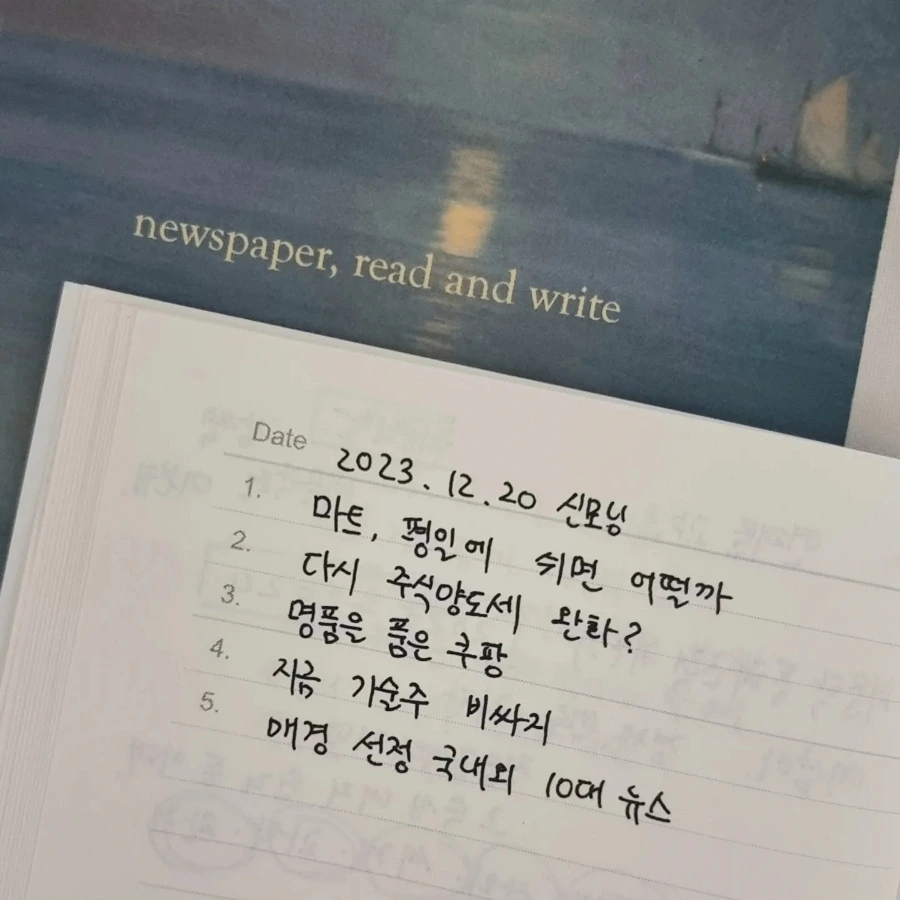 newspaper, read and write
Date 2023.12.20 신모닝
1. 마트, 평일에 쉬면 어떨까
2. 다시 주식양도세 완화?
3. 명품을 품은 쿠팡
4. 지금 기술주 비싸지
5. 매경 선정 국내외 10대 뉴스